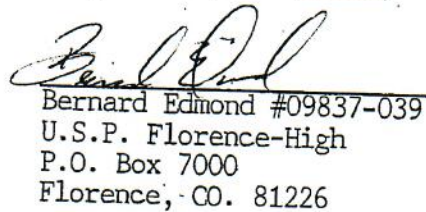 Bernard Edmond #09837-039
U.S.P. Florence-High
P.O. Box 7000
Florence, CO. 81226